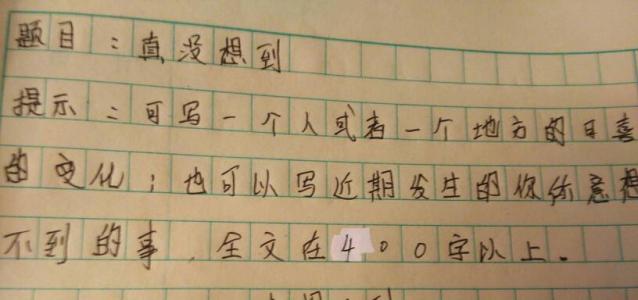 题目：真没想到
提示：可写一个人或者一个地方的可喜
的变化；也可以写近期发生的你意想
不到的事，全文在400字以上。